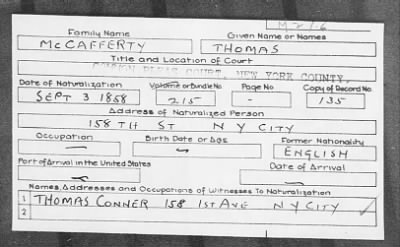 M-216
Family Name Given Name or Names
McCAFFERTY THOMAS
Title and Location of Court
COMMON PLEAS COURT, NEW YORK COUNTY,
Date of Naturalization Volume or Bundle No Page No Copy of Record No
SEPT 3 1858 215 - 135
Address of Naturalized Person
158 TH ST N Y CITY
Occupation Birth Date or Age Former Nationality
ENGLISH
Port of Arrival in the United States Date of Arrival
Names, Addresses and Occupations of Witnesses To Naturalization
1 THOMAS CONNER 158 1ST AVE N Y CITY
2